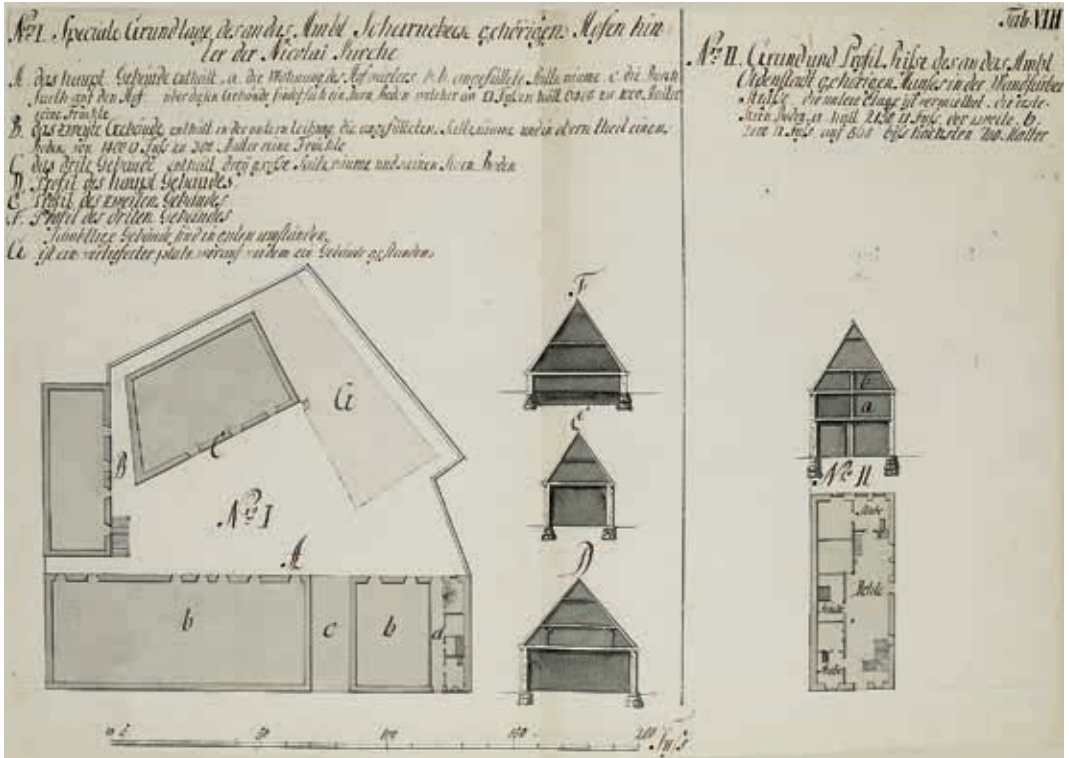 Tab. VIII
No. I. Speciale Grundlage des an das Ambt Scharnebeck gehörigen Hofes hin
ter der Nicolai Kirche
A das haupt Gebäude enthält, a. die Wohnung des Hofmeisters, b.b. angefüllete Ställe räume, c. die
farth auf den Hof. über diesen Gebäude findet sich ein Korn boden welcher an □ Fuss en hält zu 1000 Malter
reine Früchte
B. das zweyte Gebäude enthält in der untern die angefülleten Stalle räume und in obern theil einen
boden, von 1400 □ Fuss zu 300 Malter reine Früchte
C das drite Gebäude enthält drey große Stalle räume und seinen Korn Boden
D Profil des haupt Gebäudes
E Profil des zweiten Gebäudes
F. Profil des driten Gebäudes
Sämbtliche Gebäude sind in guten umständen
G ist ein vertiefter platz, worauf vordem ein Gebäude gestanden
No. II. Grund und Profil Risse des an das Ambt
Oldenstadt gehörigen Hauses in der Wandfärber
Strasse die untere Etage ist vermiethet, die erste
Korn Boden, a hält 2150 □ Fuss, der zweite b.
2000 □ Fuss auf biss höchsten 700 Malter
F
G
C
B
E
b
a
No. I
No. II
A
D
Stube
b
c
b
d
Stube
10
50
100
150
200 Fuss